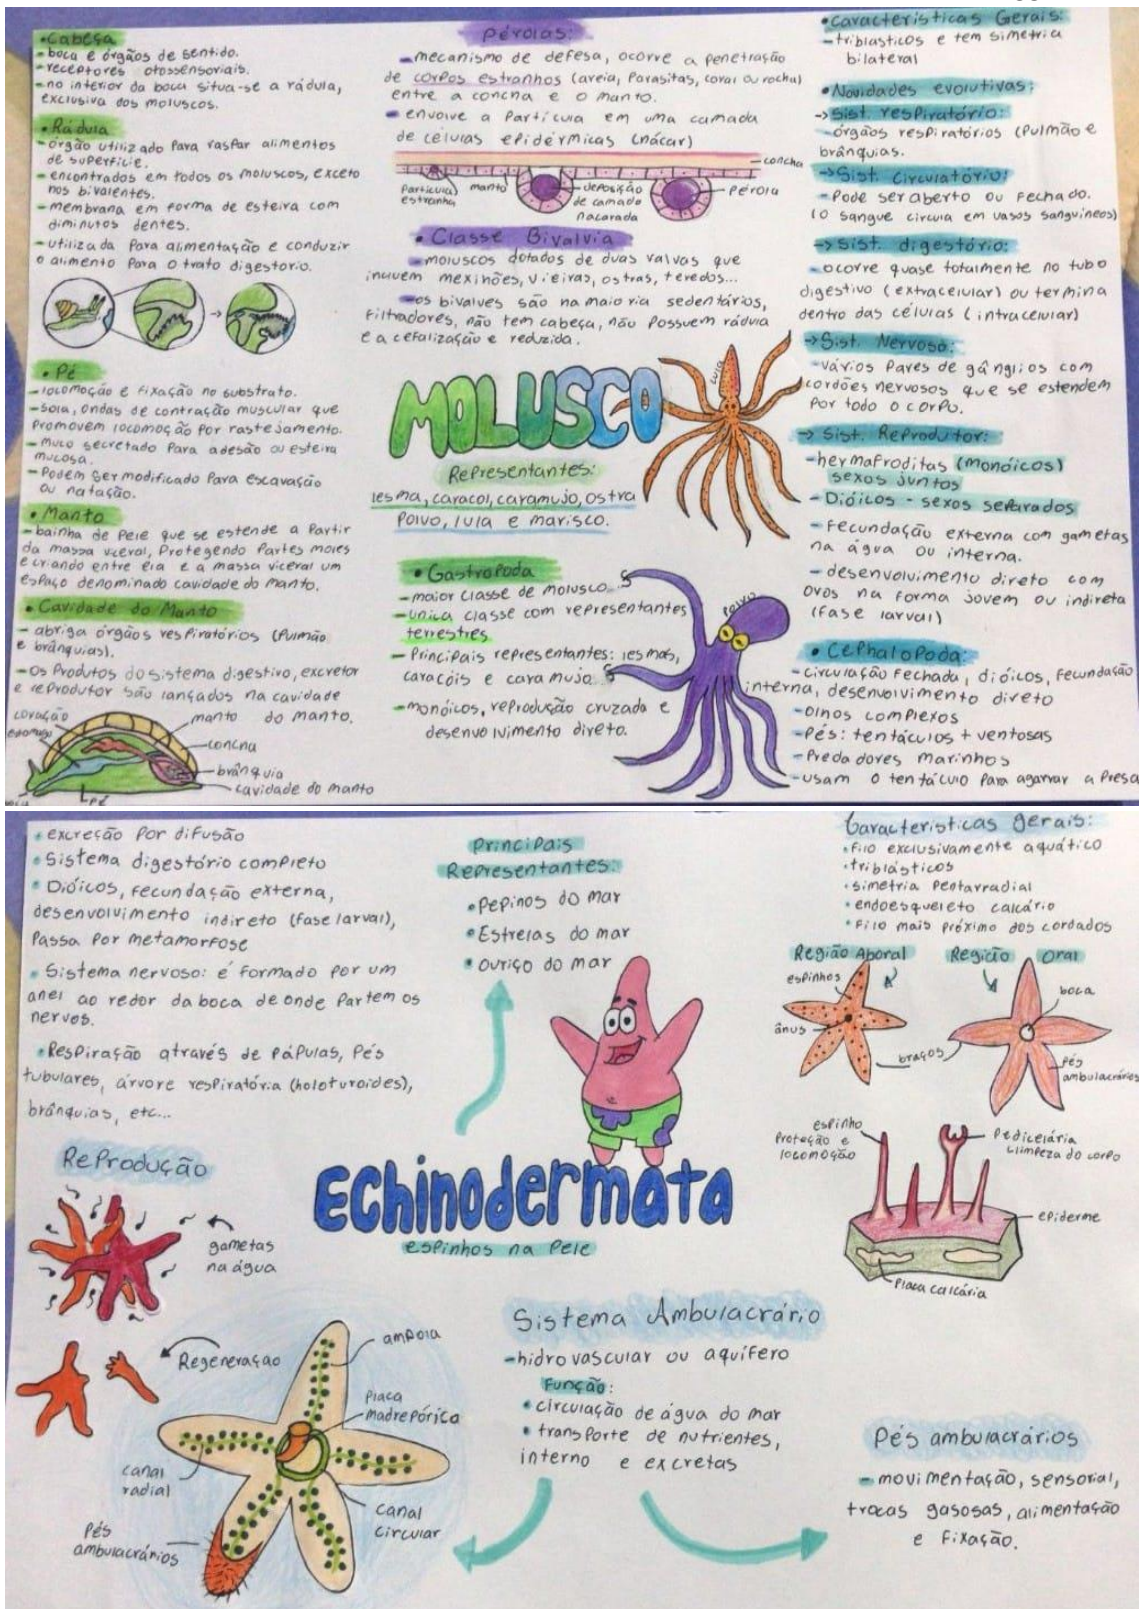 •Cabeça
- boca e órgãos de sentido.
- receptores otossensoriais.
- no interior da boca situa-se a rádula,
exclusiva dos moluscos.
• Rádula
- órgão utilizado para raspar alimentos
de superfície.
- encontrados em todos os moluscos, exceto
nos bivalentes.
- membrana em forma de esteira com
diminutos dentes.
- utilizada para alimentação e conduzir
o alimento para o trato digestorio.
• Pé
- locomoção e fixação no substrato.
- sola, ondas de contração muscular que
promovem locomoção por rastejamento.
- muco secretado para adesão ou esteira
mucosa.
- Podem ser modificado para escavação
ou natação.
• Manto
- bainha de pele que se estende a partir
da massa viceral, Protegendo Partes moles
e criando entre ela e a massa viceral um
espaço denominado cavidade do manto.
• Cavidade do Manto
- abriga órgãos respiratórios (Pulmão
e brânquias).
- os Produtos do sistema digestivo, excretor
e reprodutor são lançados na cavidade
do manto.
coração
estomago
manto
concha
brânquia
cavidade do manto
Pé
Pérolas:
- mecanismo de defesa, ocorre a penetração
de corpos estranhos (areia, Parasitas, coral ou rocha)
entre a concha e o manto.
- envolve a Partícula em uma camada
de células epidérmicas (nácar)
concha
Partícula
estranha
manto
deposição
de camada
nacarada
Pérola
• Classe Bivalvia
- moluscos dotados de duas valvas que
incluem mexilhões, vieiras, ostras, teredos...
- os bivalves são na maioria sedentários,
filtradores, não tem cabeça, não Possuem rádula
e a cefalização e reduzida.
MOLUSCO
lula
Representantes:
lesma, caracol, caramujo, ostra
Polvo, lula e marisco.
• Gastropoda
- maior classe de molusco
- unica classe com representantes
terrestres
- Principais representantes: lesmas,
caracóis e caramujo
- monóicos, reprodução cruzada e
desenvolvimento direto.
Polvo
• Características Gerais:
- triblasticos e tem simetria
bilateral
• Novidades evolutivas:
-> Sist. respiratório:
- órgãos respiratórios (Pulmão e
brânquias.
-> Sist. Circulatório:
- Pode ser aberto ou fechado.
(o sangue circula em vasos sanguíneos)
-> Sist. digestório:
- ocorre quase totalmente no tubo
digestivo (extracelular) ou termina
dentro das células (intracelular)
-> Sist. Nervoso:
- vários Pares de gânglios com
cordões nervosos que se estendem
Por todo o corpo.
-> Sist. Reprodutor:
- hermafroditas (monóicos)
sexos juntos
- Dióicos - sexos separados
- fecundação externa com gametas
na água ou interna.
- desenvolvimento direto com
ovos na forma jovem ou indireta
(fase larval)
• Cephalopoda:
- circulação fechada, dióicos, fecundação
interna, desenvolvimento direto
- Olhos complexos
- Pés: tentáculos + ventosas
- Predadores marinhos
- usam o tentáculo Para agarrar a Presa
• excreção Por difusão
• Sistema digestório completo
• Dióicos, fecundação externa,
desenvolvimento indireto (fase larval),
Passa Por metamorfose
• Sistema nervoso: é formado por um
anel ao redor da boca de onde Partem os
nervos.
• Respiração através de Pápulas, Pés
tubulares, árvore respiratória (holoturoides),
brânquias, etc...
Principais
Representantes:
• Pepinos do mar
• Estrelas do mar
• Ouriço do mar
Características gerais:
• filo exclusivamente aquático
• triblásticos
• simetria Pentarradial
• endoesqueleto calcário
• Filo mais próximo dos cordados
Região Aboral
Região Oral
espinhos
ânus
braços
boca
Pés
ambulacrários
espinho
Proteção e
locomoção
Pedicelária
(limpeza do corpo
epiderme
Placa calcária
Echinodermata
espinhos na Pele
Reprodução
gametas
na água
Regeneração
ampola
Placa
madrepórica
canal
radial
canal
circular
Pés
ambulacrários
Sistema Ambulacrário
- hidrovascular ou aquífero
Função:
• circulação de água do mar
• transporte de nutrientes,
interno e excretas
Pés ambulacrários
- movimentação, sensorial,
trocas gasosas, alimentação
e fixação.